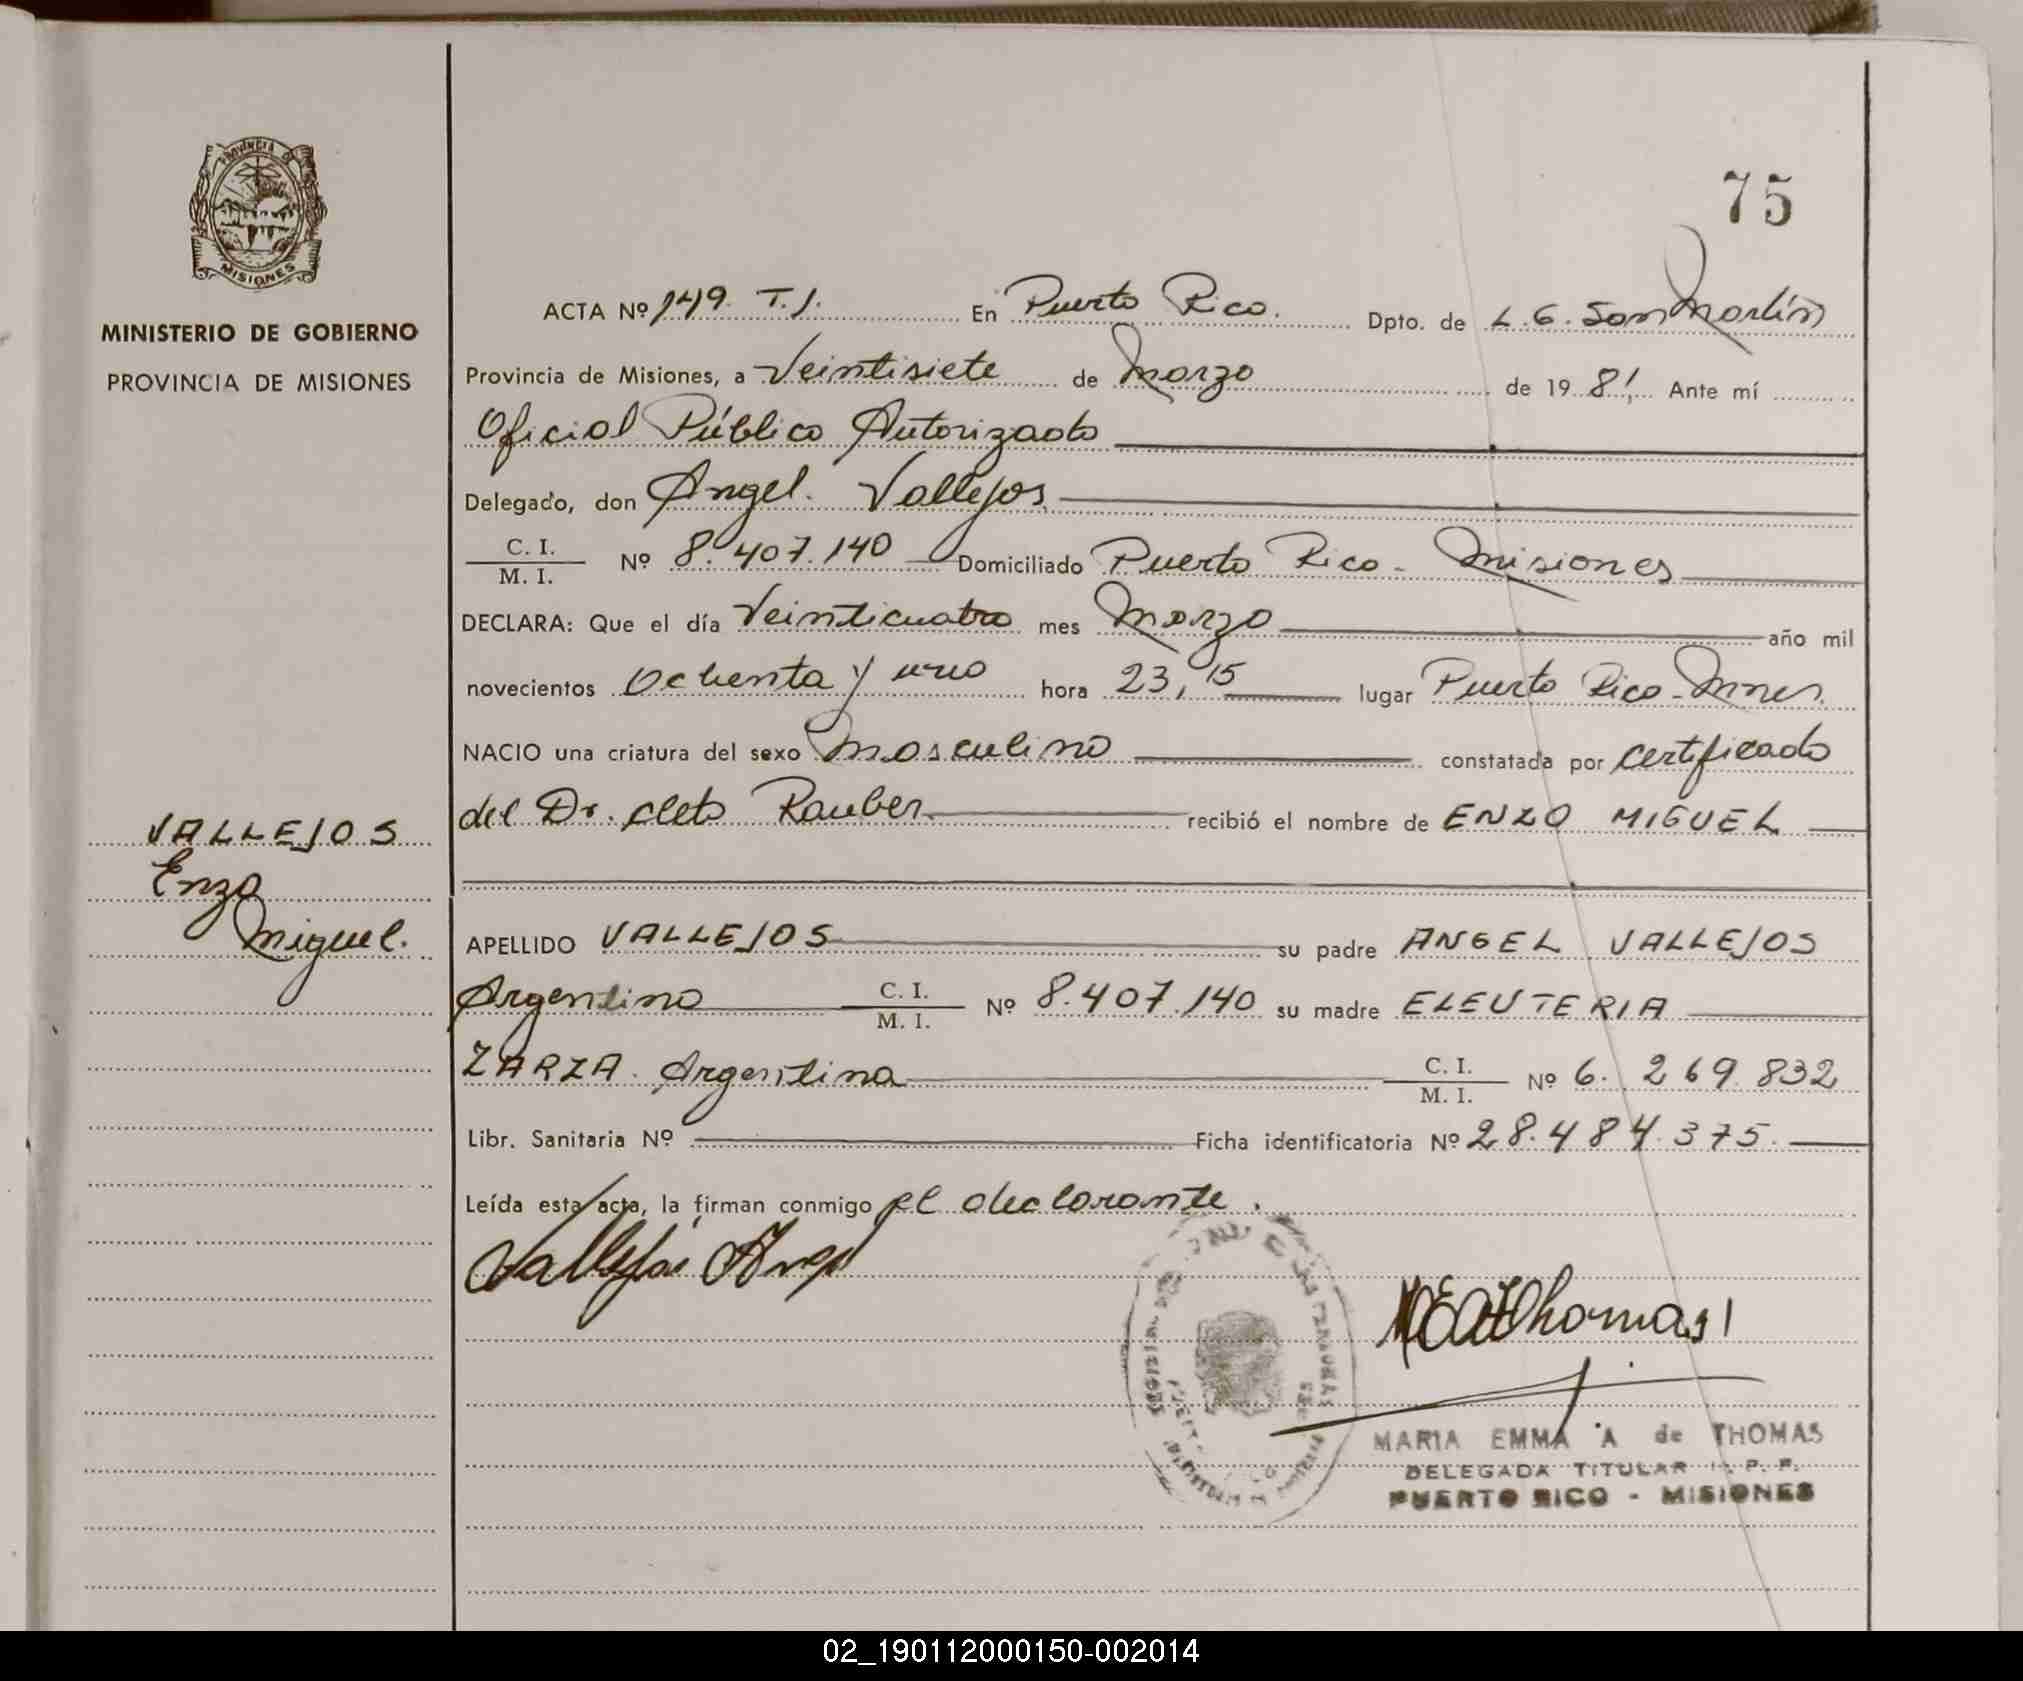 75
PROVINCIA DE
MISIONES
MINISTERIO DE GOBIERNO
PROVINCIA DE MISIONES
ACTA Nº 149. T. I. En Puerto Rico. Dpto. de L. G. San Martín
Provincia de Misiones, a Veintisiete de Marzo de 19 81. Ante mí
Oficial Público Autorizado
Delegado, don Angel. Vallejos
C. I.
M. I.
Nº 8.407.140 Domiciliado Puerto Rico - Misiones
DECLARA: Que el día Veinticuatro mes Marzo año mil
novecientos Ochenta y uno hora 23,15 lugar Puerto Rico - Mnes.
NACIO una criatura del sexo Masculino constatada por certificado
del Dr. Cleto Rauber recibió el nombre de ENZO MIGUEL
VALLEJOS
Enzo
Miguel.
APELLIDO VALLEJOS su padre ANGEL VALLEJOS
Argentino C. I.
M. I.
Nº 8.407.140 su madre ELEUTERIA
ZARZA. Argentina C. I.
M. I.
Nº 6. 269.832
Libr. Sanitaria Nº Ficha identificatoria Nº 28.484.375.
Leída esta acta, la firman conmigo el declarante.
Vallejos Angel
MEA Thomas
MARIA EMMA A de THOMAS
DELEGADA TITULAR
PUERTO RICO - MISIONES
02_190112000150-002014